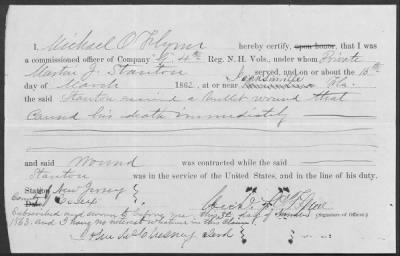 I, Michael O'Flynn hereby certify, upon honor, that I was
a commissioned officer of Company 4th Reg. N. H. Vols., under whom Private
Martin J. Stanton served, and on or about the 15th
day of March 1862, at or near Jacksonville Fla.
the said Stanton received a bullet wound that
caused his death immediately
and said Wound was contracted while the said
Stanton was in the service of the United States, and in the line of his duty.
State of New Jersey
County of Essex
Subscribed and sworn to before me this day of
(Signature of Officer.)
1863. and I have no interest in this claim
Clerk